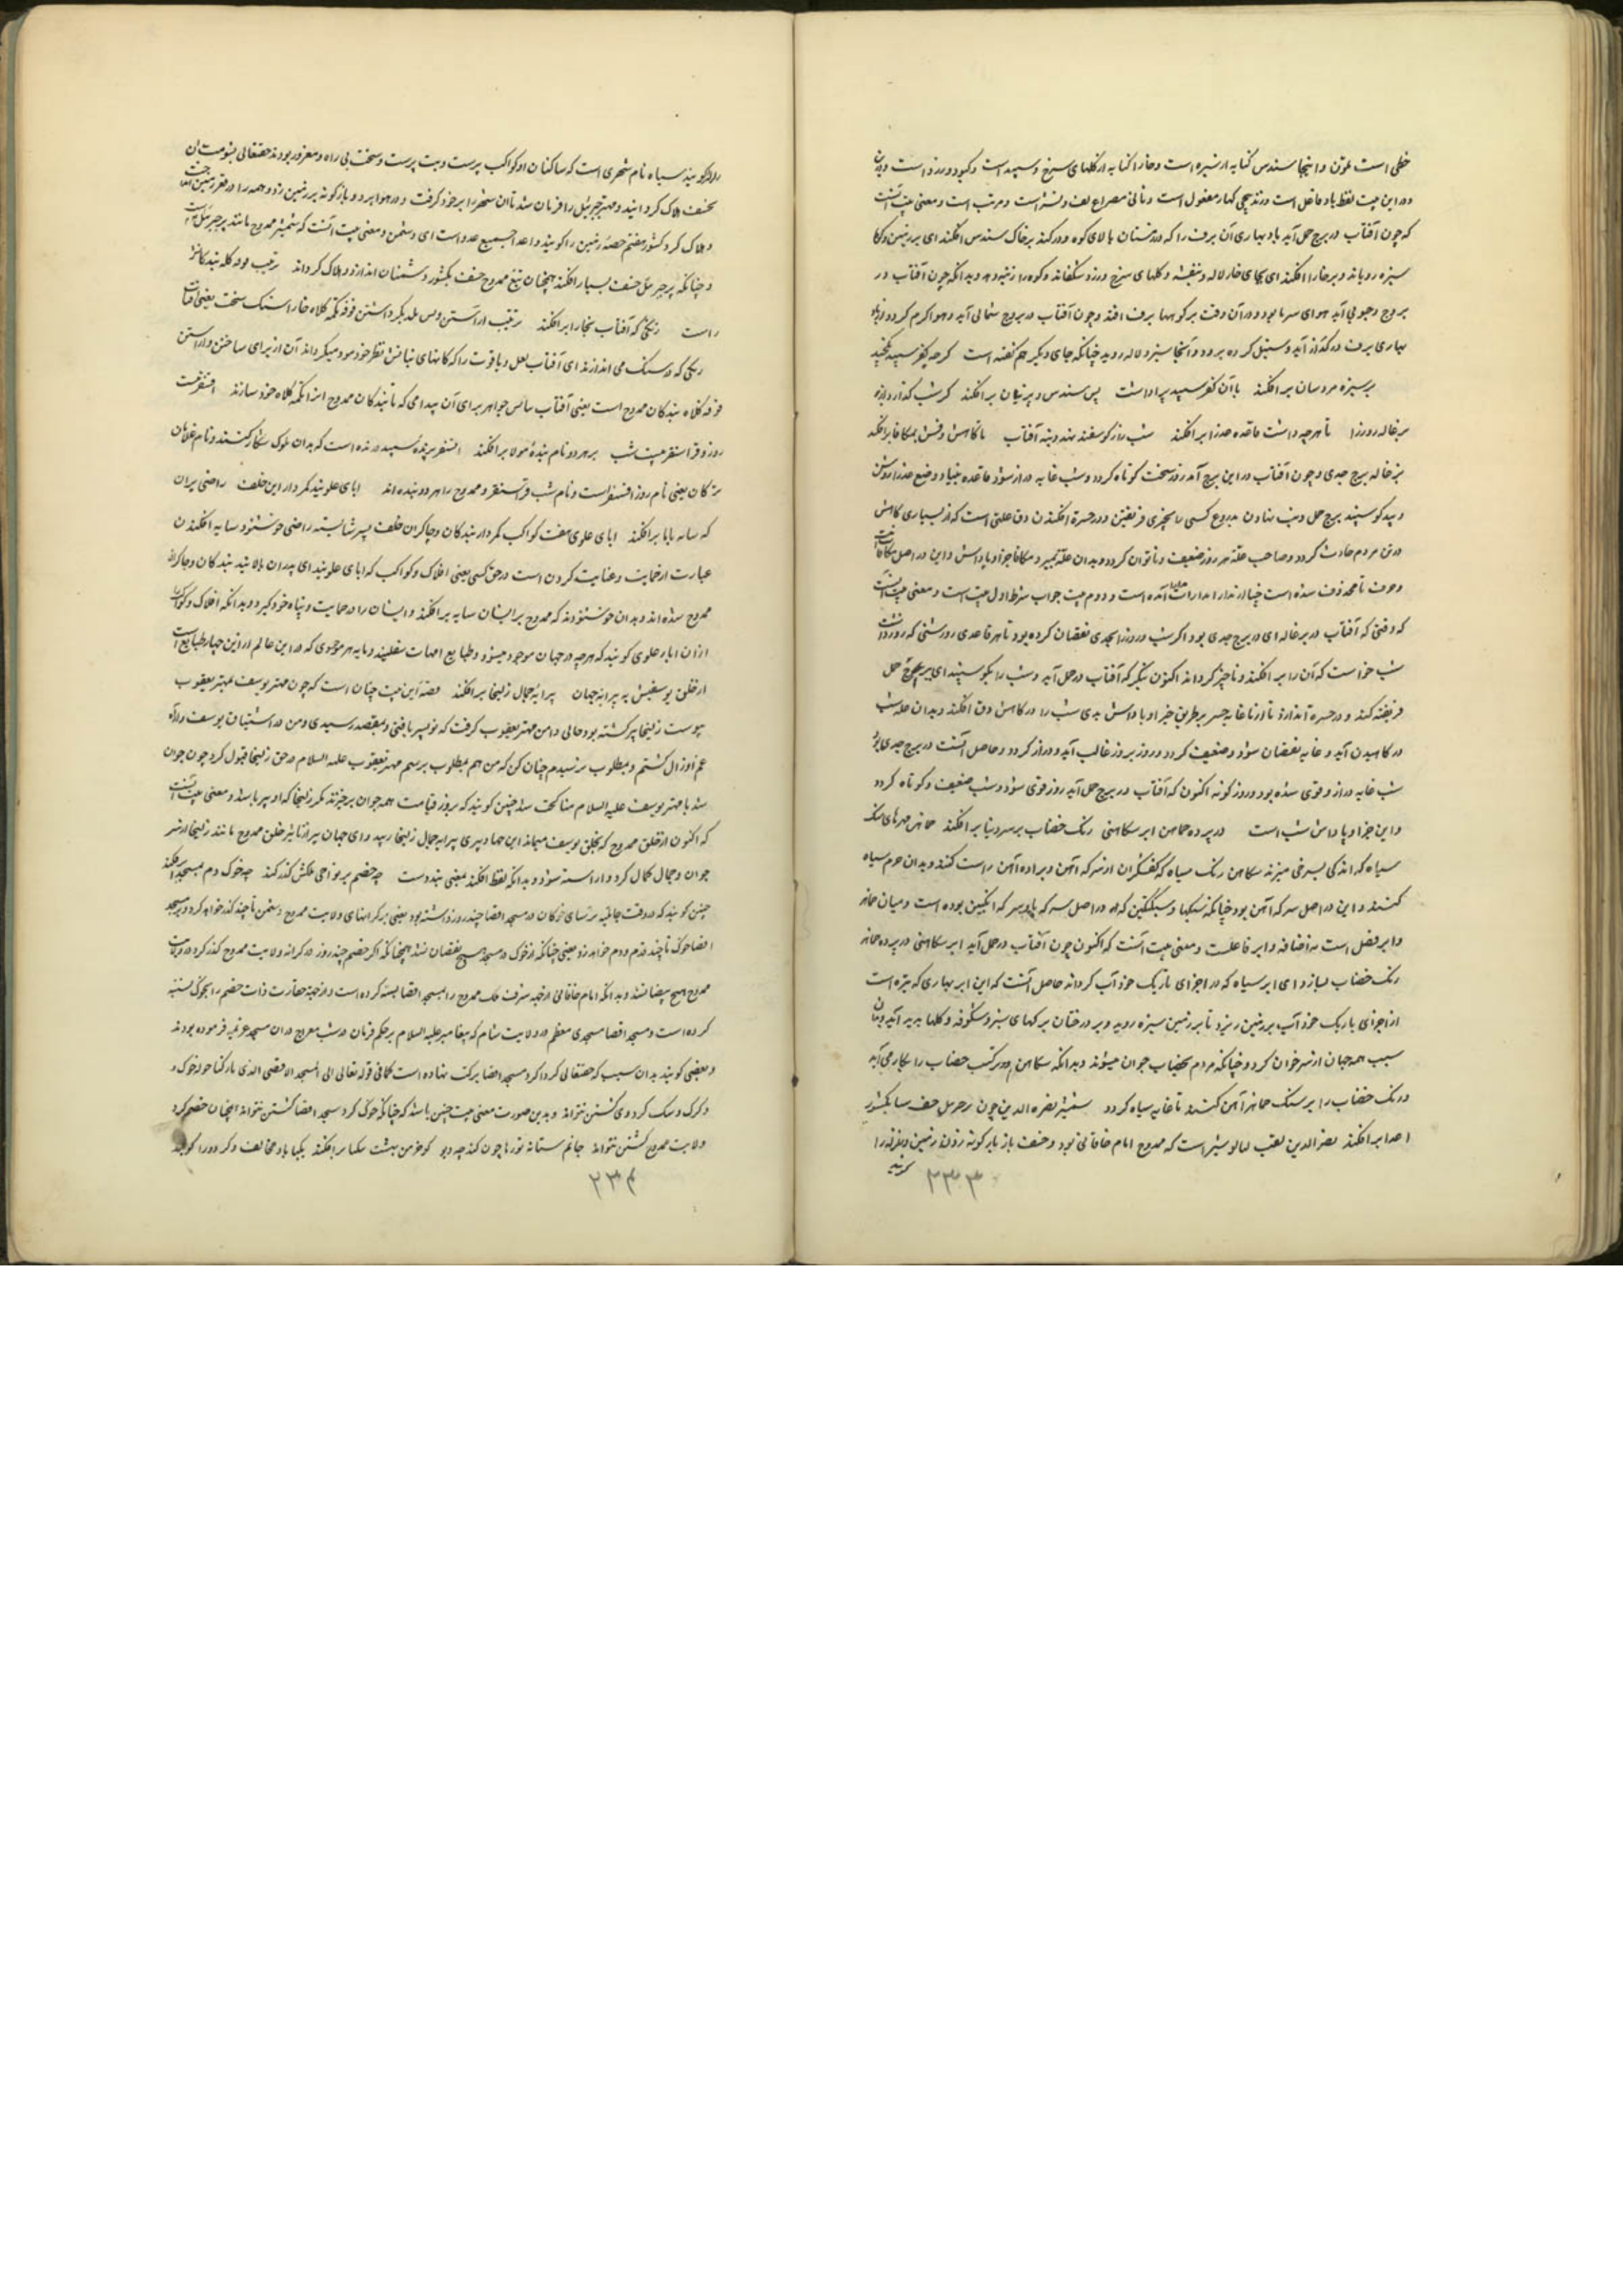 خطی است ملون و اینجا سندس کنایه از سبزه است و خارا کنایه از گلهای سرخ و سپید است و کبود و زرد است
و در این بیت لفظ باد فاعل است و ثانی مصراع لف و نشر است و مرتب است و معنی بیت آنست
که چون آفتاب در برج حمل آید باد بهاری آن برف را که در زمستان بالای کوه و در کند بر خاک سندس افکند ای بر زمین
سبزه رویاند و بر خارا افکند ای بجای خار لاله و بنفشه و گلهای سرخ و زرد شکفاند و کوه را زینه دهد و بدانکه چون آفتاب در
بروج جنوبی آید هوای سرما بود و در آن وقت بر کوهها برف افتد و چون آفتاب در بروج شمالی آید و هوا گرم گردد و باد
بهاری برف در گداز آید و سیل کرده برود و آنجا سبزه و لاله روید چنانکه جای دیگر هم گفته است
بر سبزه مرد سان برافکند با آن کفر سپید برداشت پس سندس و پرنیان برافکند
بزغاله روز را تا هر چه داشت قاعده عذرا برافکند شب را ز گوسفند نهد دنبه آفتاب تا کاهش دقش بمکافا برافکند
بزغاله برج جدی و چون آفتاب در این برج آمد روز سخت کوتاه گردد و شب غایه دراز شود قاعده بنیاد و وضع عذرا روشن
و سپید گوسپند برج حمل دنبه نهادن بدروغ کسی را بچیزی فریفتن و در حسرة افکندن دق علتی است که از بسیاری کاهش
در تن مردم حادث گردد و صاحب علة هر روز ضعیف و ناتوان گردد و بدان علة بمیرد و مکافا جزا و پاداش و این در اصل مکافات
و حرف تا محذوف شده است چنانکه مدارا مدارات آمده است و دوم بیت جواب شرط اول بیت است و معنی بیت آنست
که وقتی که آفتاب در بزغاله ای در برج جدی بود اگر شب در روز الجدی نقصان کرده بود تا هر قاعدی روشنی که روز داشت
شب خواست که آن را برافکند و ناچیز گرداند اکنون بنگر که آفتاب در حمل آید و شب را بگوسپند ای ببرج حمل
فریفته کند و در حسره اندازد تا از ناغایه جسر بر طریق جزا و پاداش بدی شب را در کاهش دق افکند و بدان علة شب
در کاهیدن آید و غایه نقصان شود و ضعیف گردد و روز بروز غالب آید و دراز گردد و حاصل آنست در برج جدی
شب غایه دراز و قوی شده بود و روز کوته اکنون که آفتاب در برج حمل آید روز قوی شود و شب ضعیف و کوتاه گردد
و این جزا و پاداش شب است در پرده خماهن ابر سکاهنی رنگ خضاب بر سر دنیا برافکند خماهن مهرهای سنگ
سیاه که اندکی بسرخی میزند سکاهن رنگ سیاه که کفشگران از سرکه آهن و براده آهن راست کنند و بدان چرم سیاه
کنند و این در اصل سرکه آهن بود چنانکه سکبها و سکنگبین که در اصل سرکه با و سرکه انگبین بوده است و میان خماهن
و ابر فصل است نه اضافه و ابر فاعلست و معنی بیت آنست که اکنون چون آفتاب در حمل آید ابر سکاهنی در پرده خماهن
رنگ خضاب بسازد ای ابر سیاه که در اجزای باریک خود آب گرداند حاصل آنست که این ابر بهاری که تیره است
از اجزای باریک خود آب بر زمین ریزد تا بر زمین سبزه روید و بر درختان برگهای سبز و شکوفه و گلها پدید آید
سبب همه جهان از سر جوان گردد چنانکه مردم بخضاب جوان میشوند و بدانکه سکاهن در ترکیب خضاب را بکار می آید
و رنگ خضاب را بر سنگ خماهن آهن کنند تا غایه سیاه گردد شمشیر نصرة الدین چون پر جبرئیل خسف سبا بکشور
اعدا برافکند نصر الدین لقب لیالوشیر است که ممدوح امام خاقانی بود و خسف باز بار گونه زدن زمین و لرزه را
گویند
۲۳۳
را گویند سباه نام شهری است که ساکنان او کواکب پرست و بت پرست و سخت بی راه و مغرور بودند حقتعالی بشومت آن
بخسف هلاک گردانید و مهتر جبرئیل را فرمان شد تا آن شهر را بر خود گرفت و در هوا برد و باز گونه بر زمین زد و همه را در قعر زمین
و هلاک کرد کشور هفتم حصة زمین را گویند و اعدا جمع عدو است ای دشمن و معنی بیت آنست که شمشیر ممدوح مانند پر جبرئیل است
و چنانکه پر جبرئیل خسف بسبا را فکند همچنان تیغ ممدوح خسف بکشور دشمنان اندازد و هلاک گرداند
راست رنگی که آفتاب بخارا برافکند ترتیب آراستن و پس یکدیگر داشتن قوقه تکمه کلاه خارا سنگ سخت یعنی آفتاب
رنگی که در سنگ می اندازند ای آفتاب لعل و یاقوت را که کانهای نباتش نظر خود مود میگرداند آن از برای ساختن و آراستن
قوقه کلاه بندگان ممدوح است یعنی آفتاب سایس جواهر برای آن پیدا می که تا بندگان ممدوح از آن تکمه کلاه خود سازند
روز و قرا سنقر بیت شب بر هر دو نام بندهٔ مولا برافکند اقسنقر پرنده سپید درنده است که بدان ملوک شکار کنند و نام غلامان
ترکان یعنی نام روز اقسنقر است و نام شب قراسنقر و ممدوح را هر دو بنده اند ابای علو بند کمر دار این خلف راضی بر آن
که سایه بابا برافکند ابای علوی هفت کواکب کمر دار بندگان و چاکران خلف پسر شایسته راضی خوشنود سایه افکندن
عبارت از حمایت و عنایت کردن است در حق کسی یعنی افلاک و کواکب که ابای علو بند ای پدران بالا بند بندگان و چاکران
ممدوح شده اند و بدان خوشنودند که ممدوح بر ایشان سایه برافکند و ایشان را در حمایت و پناه خود گیرد و بدانکه افلاک و کواکب
از آن اباء علوی گویند که هر چه در جهان موجود میشود و طبایع امهات سفلیند و مایه هر موجودی که در این عالم از این چهار طبایع است
از خلق یوسفیش به پیرانه جهان پیرایهٔ جمال زلیخا برافکند قصهٔ این بیت چنان است که چون مهتر یوسف بمهتر یعقوب
پیوست زلیخا پیر گشته بود و حالی دامن مهتر یعقوب گرفت که تو پسر یافتی و بمقصد رسیدی و من در اشتیاق یوسف
عم آوز ال گشتم و بمطلوب نرسیدم چنان کن که من هم بمطلوب برسم مهتر یعقوب علیه السلام در حق زلیخا قبول کرد چون جوان
شد با مهتر یوسف علیه السلام مناکحت شد چنین گویند که بروز قیامت همه جوان برخیزند مگر زلیخا که او پیر باشد و معنی بیت آنست
که اکنون از خلق ممدوح که بخلق یوسف میماند این جهان پیری پیرایه جمال زلیخا رسید و ای جهان پیر از تاثیر خلق ممدوح مانند زلیخا از سر
جوان و جمال کمال گردد و آراسته شود و بدانکه لفظ افکند بمعنی بندد ست چه خصم بر نواحی ملکش گذر کند چه خوک دم بمسجد اقصی برافکند
چنین گویند که در وقت جاهلیه ترسای خوکان در مسجد اقصا چند روز داشته بود یعنی بر کرانهای ولایت ممدوح دشمن تا چند گذر خواهد کرد و بر مسجد
اقصا خوک تا چند قدم و دم خواهد زد یعنی چنانکه از خوک در مسجد هیچ نقصان نشد همچنانکه اگر خصم چند روز در کرانه ولایت ممدوح گذر کرد در ولایت
ممدوح هیچ بیضا نشد و بدانکه امام خاقانی از جهه شرف ملک ممدوح را بمسجد اقصا بسته کرده است و از جهة حقارت ذات خصم را بخوک نسبت
کرده است و مسجد اقصا مسجدی معظم در ولایت شام که پیغامبر علیه السلام بر حکم فرمان در شب معراج در آن مسجد عزیمه فرموده بودند
و بعضی گویند بدان سبب که حقتعالی گرداگرد مسجد اقصا برکت نهاده است کما فی قوله تعالی الی المسجد الاقصی الذی بارکنا حوله خوک و
و گرگ و سگ گرد وی گشتن نتواند و بدین صورت معنی بیت چنین باشد که چنانکه خوک گرد مسجد اقصا گشتن نتواند همچنان خصم گرد
ولایت ممدوح گشتن نتواند جانم ستانه تو رها چون کند چه دیو کو خرمن بهشت بنکبا برافکند نکبا باد مخالف و گردد را گویند
۲۳۴